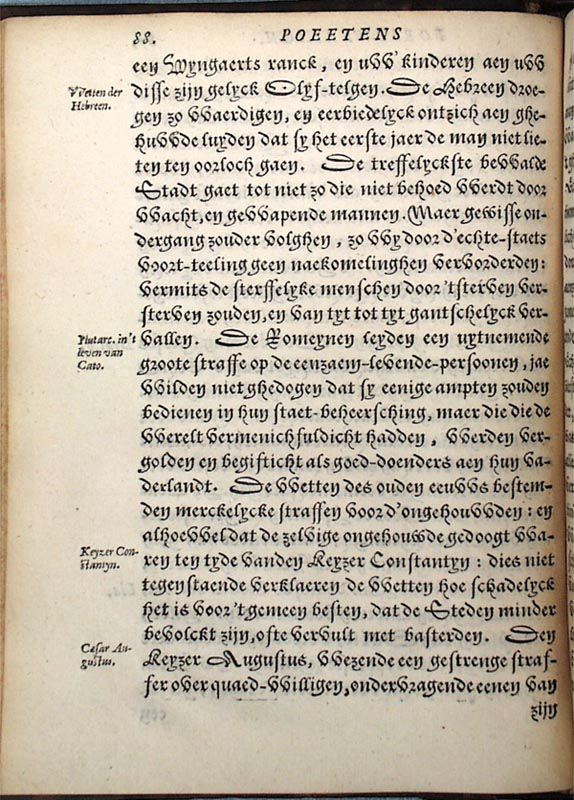 88. POEETENS
een Wyngaerts ranck, en uVV kinderen aen uVV
VVetten der Hebreen.
disse zijn gelyck Olyf-telgen. De Hebreen droe-
gen zo VVaerdigen, en eerbiedelyck ontzich aen ghe-
huVVde luyden dat sy het eerste jaer de man niet lie-
ten ten oorloch gaen. De treffelyckste beVValde
Stadt gaet tot niet zo die niet behoed VVerdt door
VVacht, en geVVapende mannen. Maer geWisse on-
dergang zouder volghen, zo VVy door d'echte-staets
Voort-teeling geen naekomelinghen Vervorderden:
Vermits de sterffelyke menschen door 'tsterven Ver-
sterven zouden, en Van tyt tot tyt gantschelyck Ver-
Plutarc. in't leven van Cato.
Vallen. De Romeynen leyden een uytnemende
groote straffe op de eenzaem-levende-persoonen, jae
VVilden niet ghedogen dat sy eenige ampten zouden
bedienen in hun staet-beheersching, maer die die de
VVerelt Vermenichfuldicht hadden, VVerden Ver-
golden en begifticht als goed-doenders aen hun Va-
derlandt. De VVetten des ouden eeuVVs bestem-
den merckelycke straffen Voor d'ongehouVVden: en
alhoeVVel dat de zelvige ongehouwde gedoogt VVa-
Keyzer Constantyn.
ren ten tyde Vanden Keyzer Constantyn: dies niet
tegenstaende Verklaeren de VVetten hoe schadelyck
het is Voor 't gemeen besten, dat de Steden minder
beVolckt zijn, ofte VerVult met basterden. Den
Cæsar Augustus.
Keyzer Augustus, VVezende een gestrenge straf-
fer over quaed-VVilligen, ondervragende eenen Van
zijn